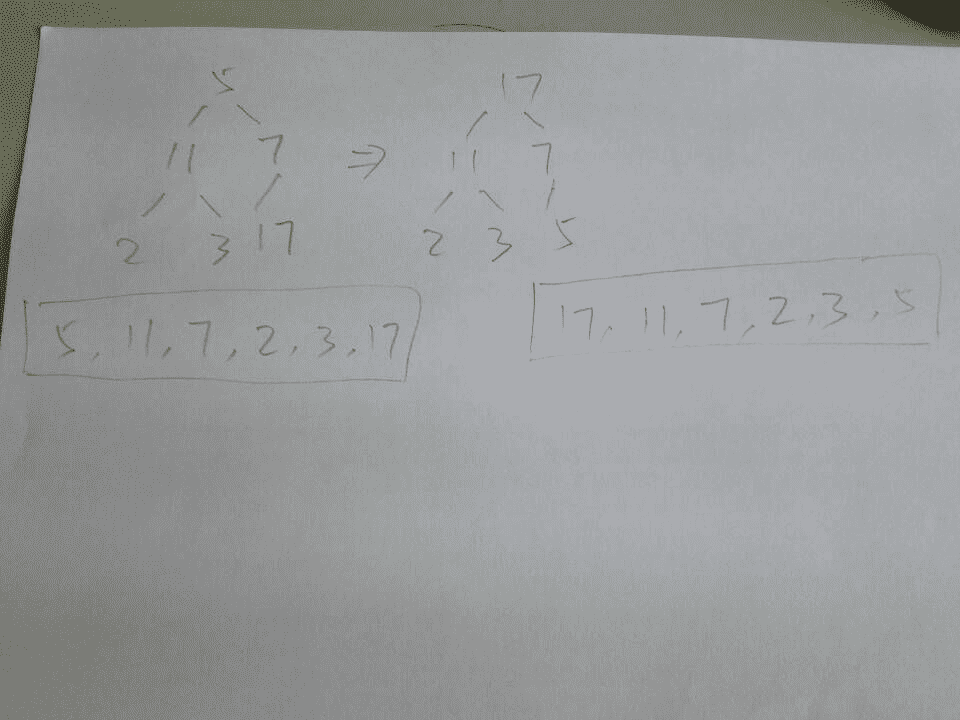 5 17
11 7 ⇒ 11 7
2 3 17 2 3 5
5, 11, 7, 2, 3, 17
17, 11, 7, 2, 3, 5